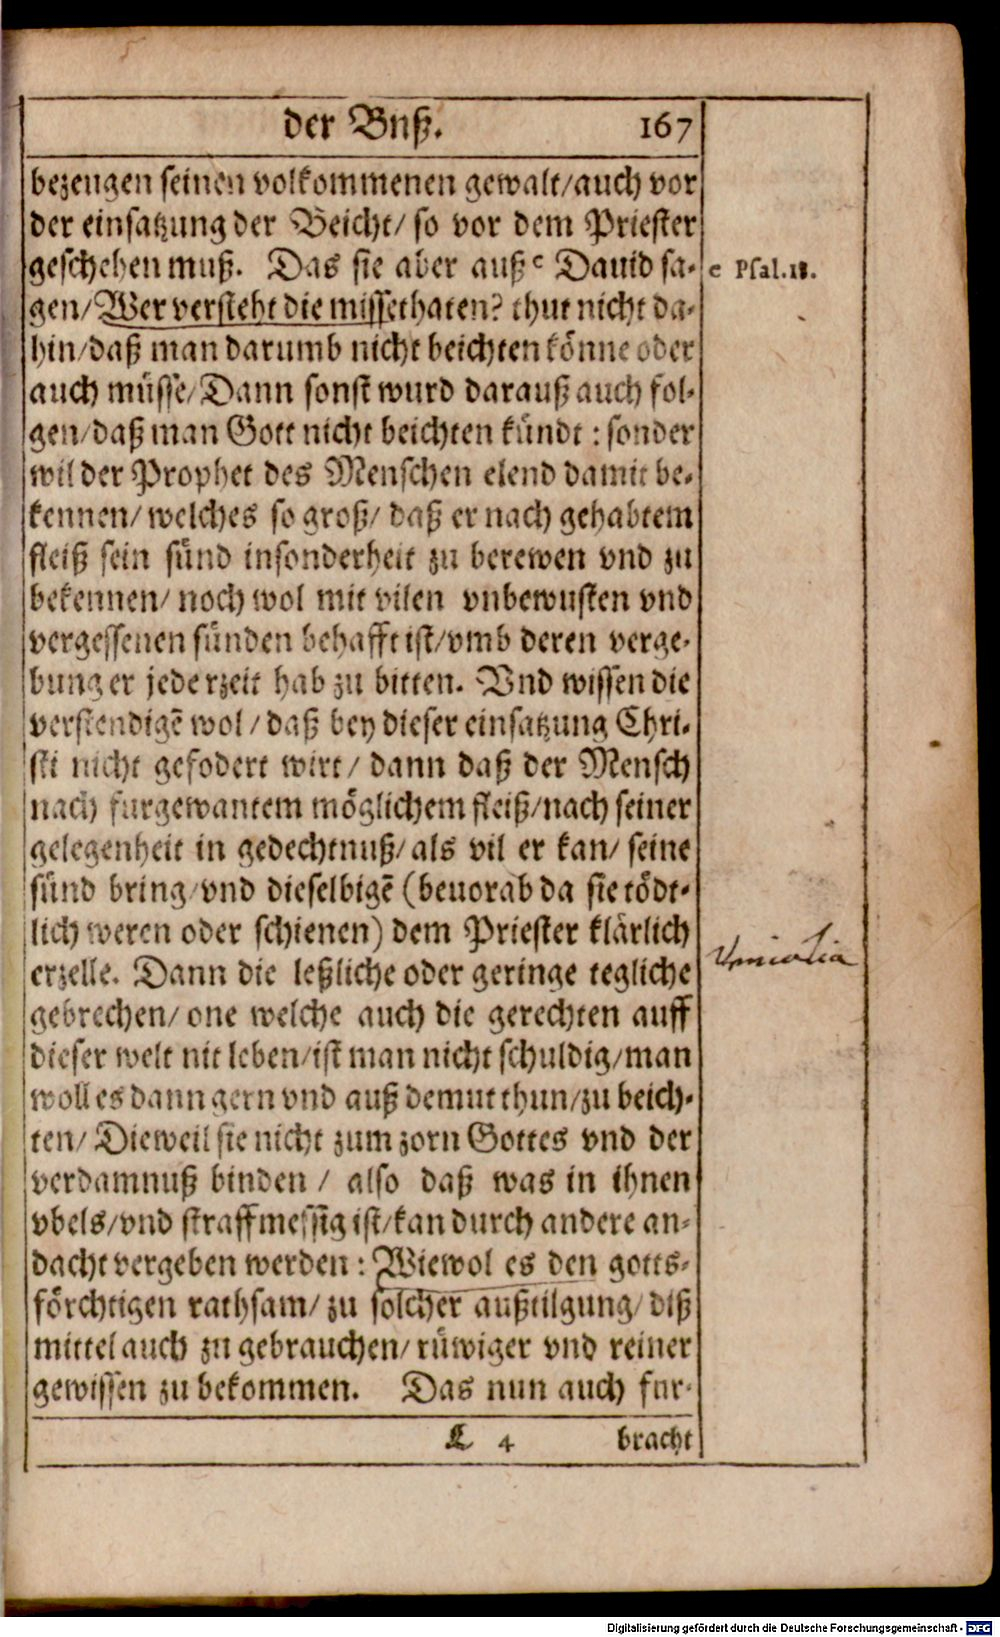 der Bnß. 167
bezeugen seinen volkommenen gewalt/auch vor
der einsatzung der Beicht/ so vor dem Priester
geschehen muß. Das sie aber auß c Dauid sa-
c Psal.18.
gen/Wer versteht die missethaten? thut nicht da-
hin/daß man darumb nicht beichten könne oder
auch müsse/Dann sonst wurd darauß auch fol-
gen/daß man Gott nicht beichten kündt : sonder
wil der Prophet des Menschen elend damit be-
kennen/ welches so groß/ daß er nach gehabtem
fleiß sein sünd insonderheit zu berewen vnd zu
bekennen/ noch wol mit vilen vnbewusten vnd
vergessenen sünden behafft ist/vmb deren verge-
bung er jederzeit hab zu bitten. Vnd wissen die
verstendigē wol/ daß bey dieser einsatzung Chri-
sti nicht gefodert wirt/ dann daß der Mensch
nach furgewantem möglichem fleiß/nach seiner
gelegenheit in gedechtnuß/als vil er kan/ seine
sünd bring/vnd dieselbigē (beuorab da sie tödt-
lich weren oder schienen) dem Priester klärlich
erzelle. Dann die leßliche oder geringe tegliche
gebrechen/ one welche auch die gerechten auff
dieser welt nit leben/ist man nicht schuldig/man
woll es dann gern vnd auß demut thun/zu beich-
ten/ Dieweil sie nicht zum zorn Gottes vnd der
verdamnuß binden / also daß was in ihnen
vbels/vnd straffmessig ist/kan durch andere an-
dacht vergeben werden : Wiewol es den gotts-
förchtigen rathsam/ zu solcher außtilgung/ diß
mittel auch zu gebrauchen/ rüwiger vnd reiner
gewissen zu bekommen. Das nun auch fur-
L 4 bracht
Digitalisierung gefördert durch die Deutsche Forschungsgemeinschaft - DFG